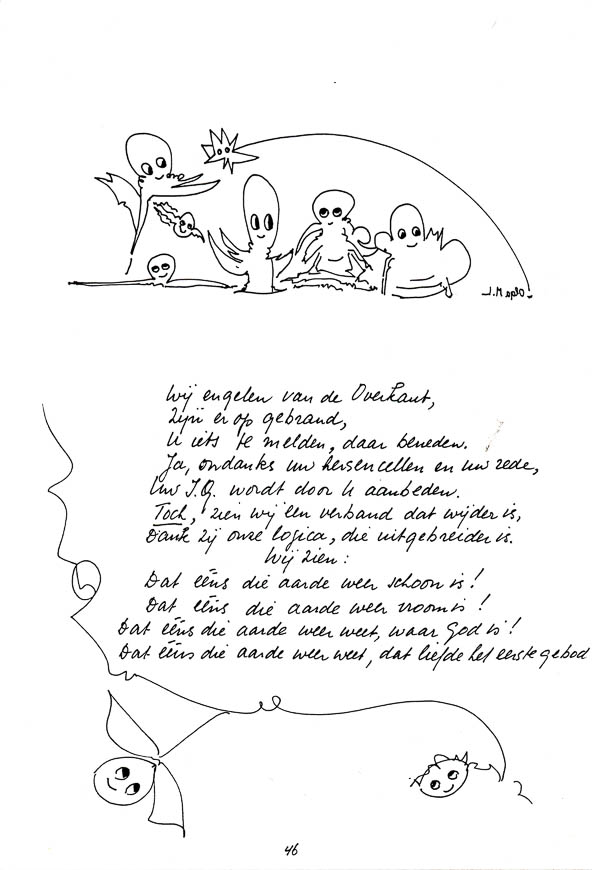 Olga M.L.
Wij engelen van de Overkant,
Zijn er op gebrand,
U iets te melden, daar beneden.
Ja, ondanks uw hersencellen en uw rede,
Uw I.Q. wordt door U aanbeden.
Toch, zien wij een verband dat wijder is,
Dank zij onze logica, die uitgebreider is.
Wij zien:
Dat ééns die aarde weer schoon is!
Dat ééns die aarde weer vroom is!
Dat ééns die aarde weer weet, waar God is!
Dat ééns die aarde weer weet, dat liefde het eerste gebod
46